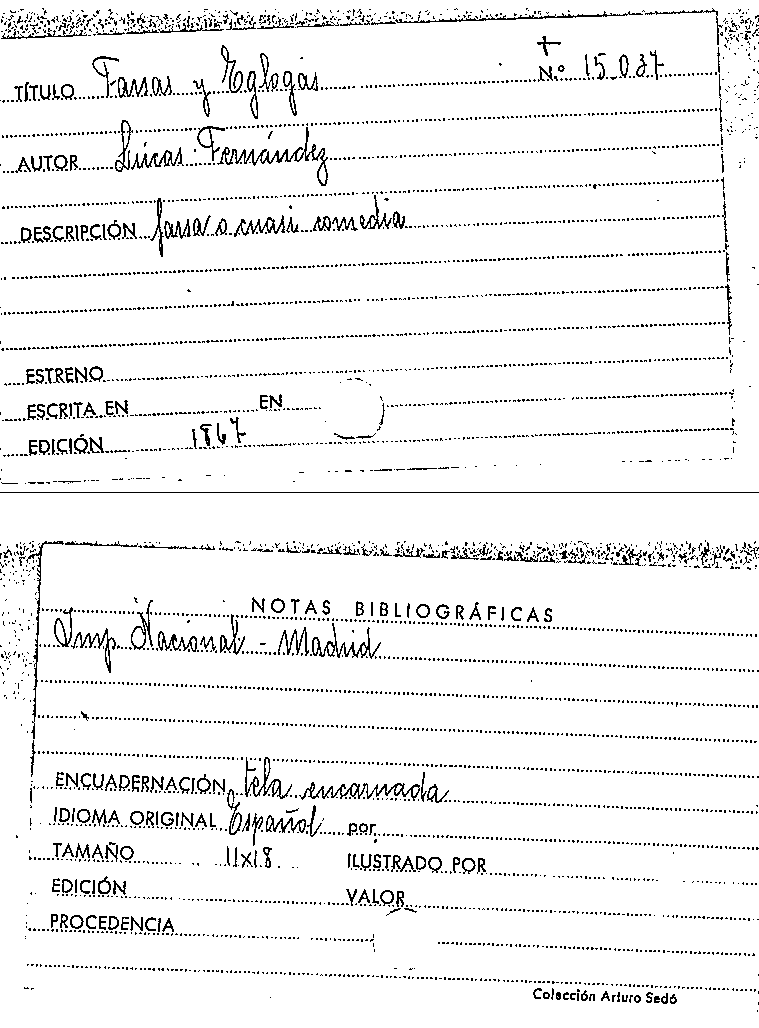 +
TÍTULO Farsas y Eglogas Nº 15.037
AUTOR Lucas Fernández
DESCRIPCIÓN farsa o cuasi comedia
ESTRENO
ESCRITA EN EN
EDICIÓN 1867
NOTAS BIBLIOGRÁFICAS
Imp Nacional - Madrid
ENCUADERNACIÓN tela encarnada
IDIOMA ORIGINAL Español por
TAMAÑO 11x18 ILUSTRADO POR
EDICIÓN VALOR
PROCEDENCIA
Colección Arturo Sedó